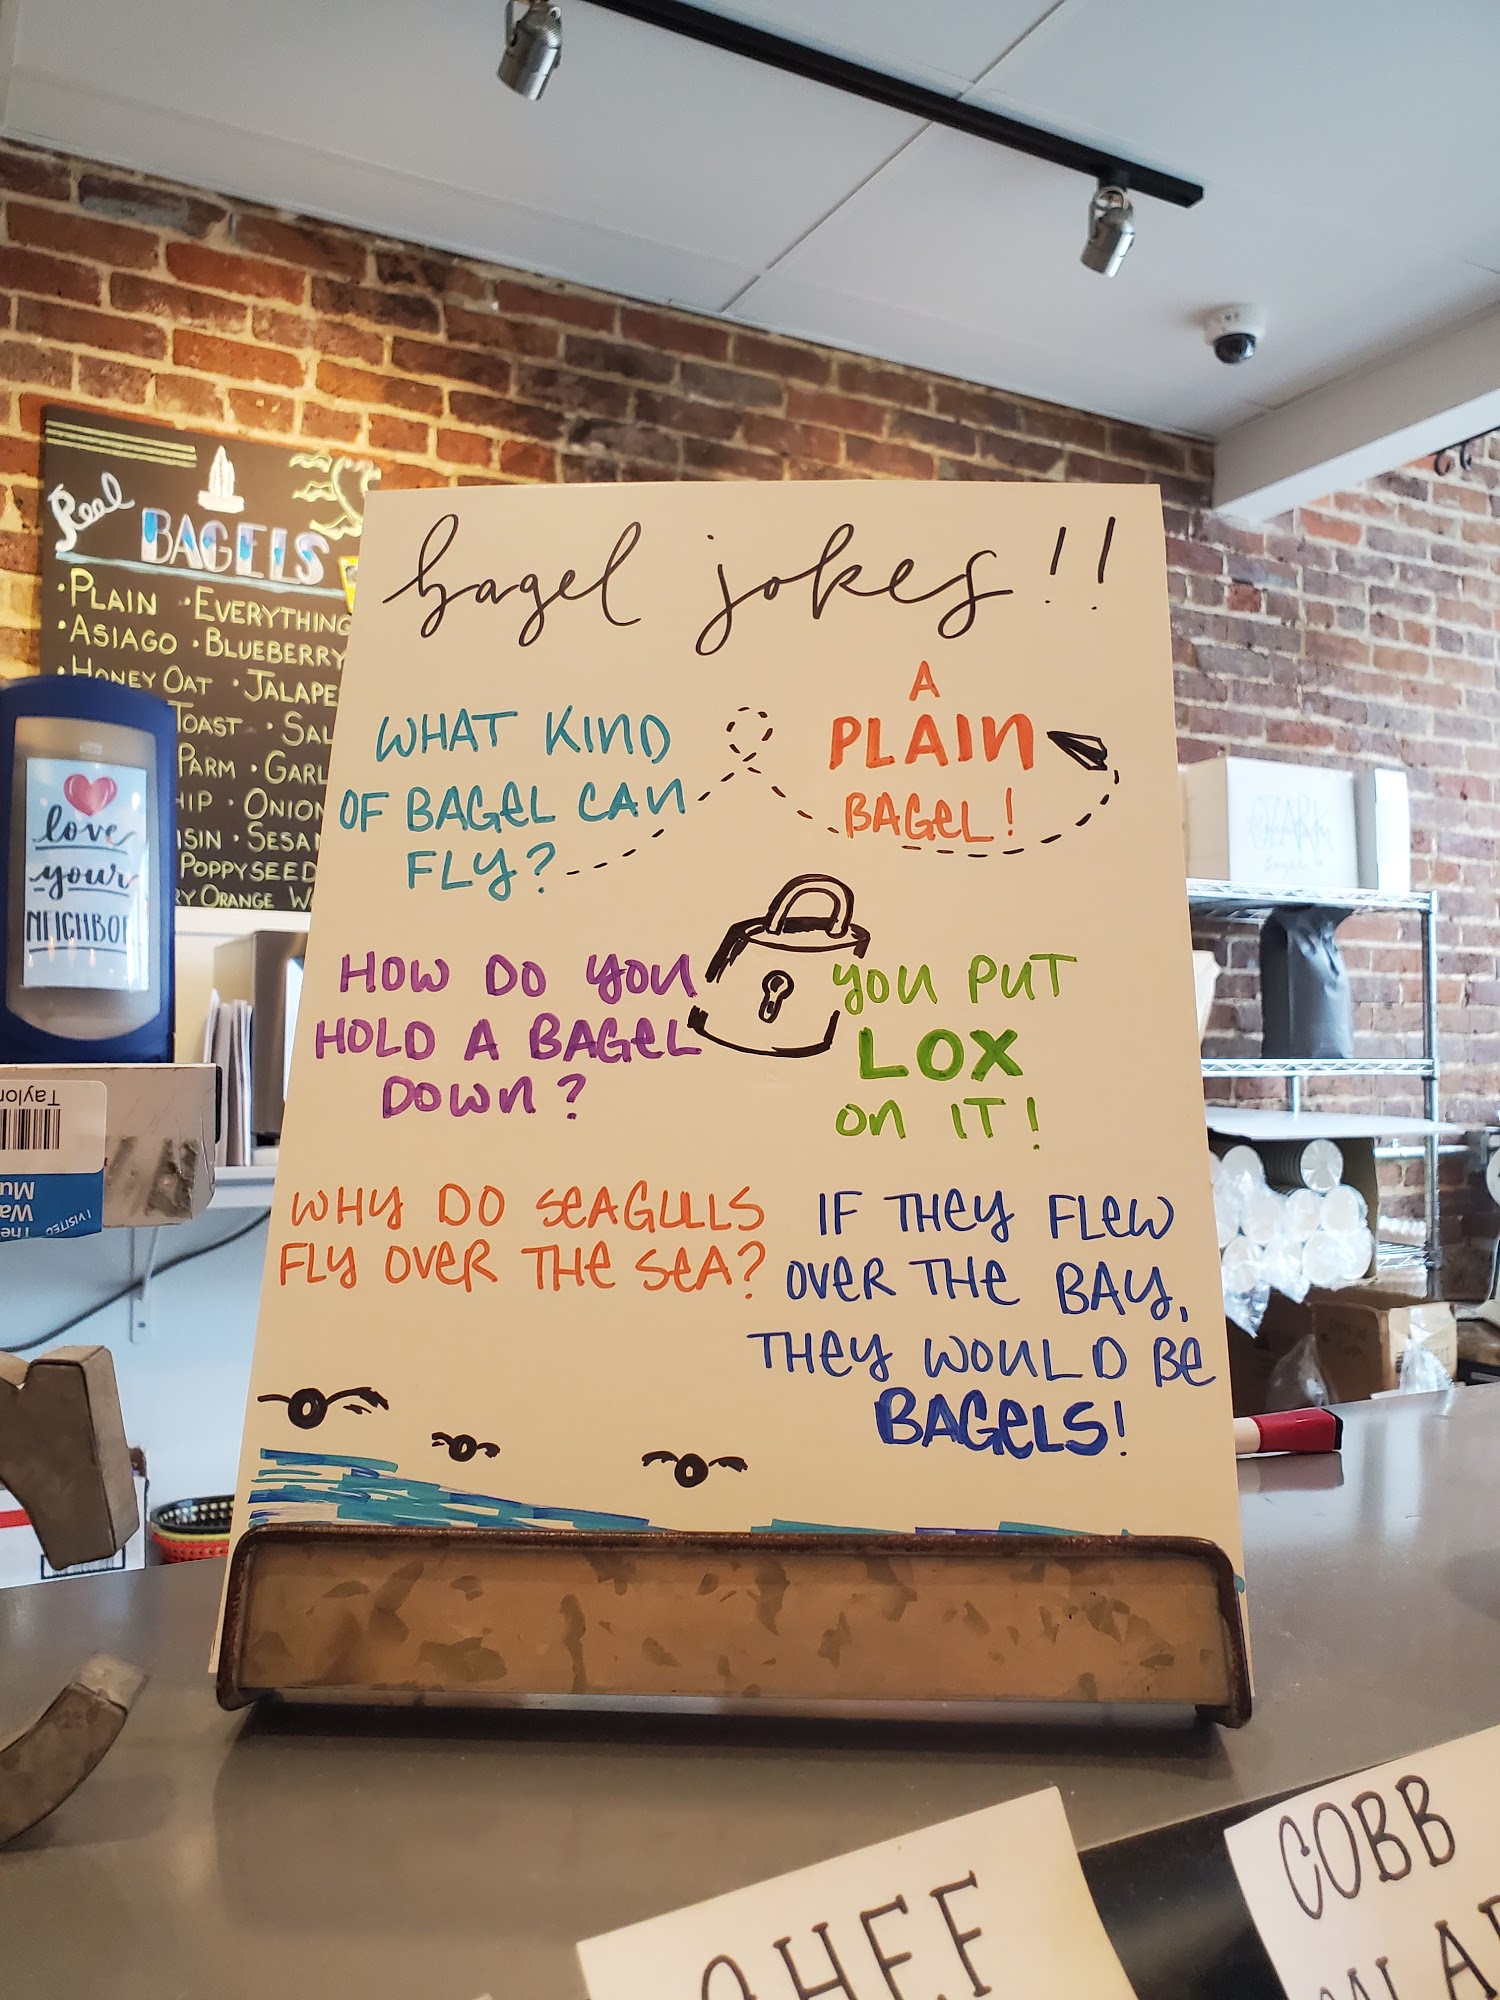 bagel jokes!!
WHAT KIND
OF BAGEL CAN
FLY?
A
PLAIN
BAGEL!
HOW DO YOU
HOLD A BAGEL
DOWN?
YOU PUT
LOX
ON IT!
WHY DO SEAGULLS
FLY OVER THE SEA?
IF THEY FLEW
OVER THE BAY,
THEY WOULD BE
BAGELS!
Real
BAGELS
·PLAIN ·EVERYTHING
·ASIAGO ·BLUEBERRY
·HONEY OAT ·JALAPE
TOAST ·SAL
PARM ·GARL
HIP ·ONION
ISIN ·SESA
POPPYSEED
RY ORANGE W
love
your
NEIGHBO
Taylor
I VISITED
The
Wa
Mu
OZARK
CHEF
COBB
SALA